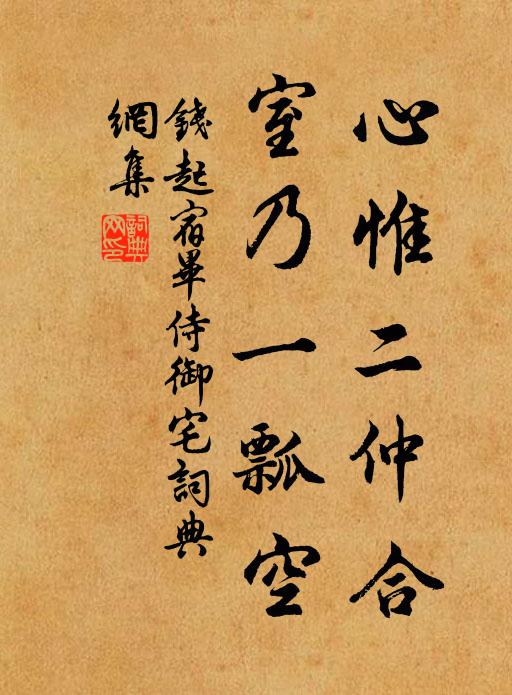 心惟二仲合
室乃一瓢空
錢起宿畢侍御宅詞典
網集
詞典
網印